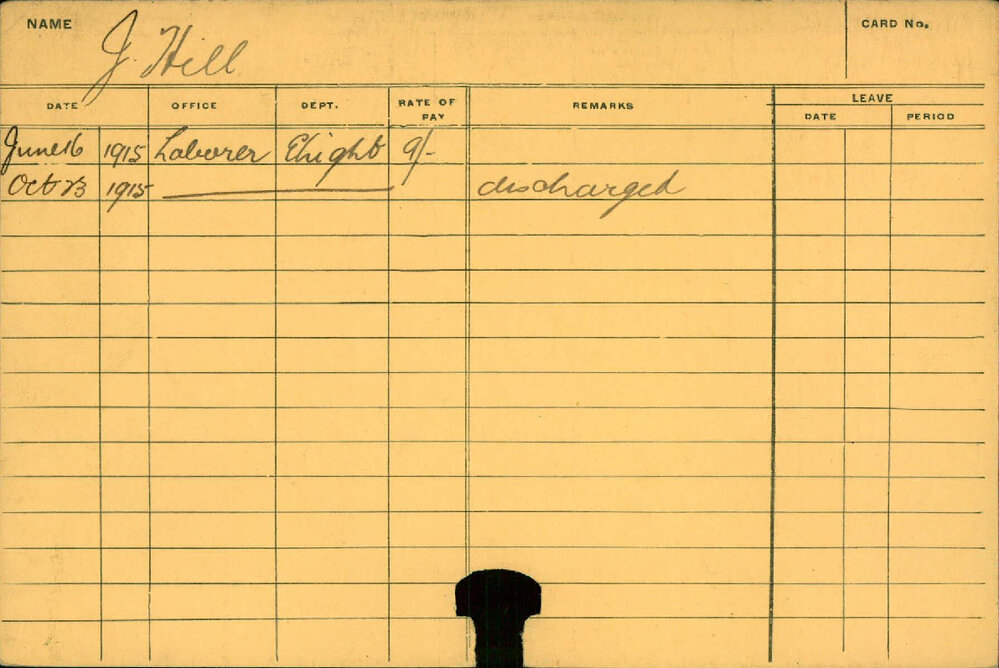 NAME J. Hill CARD No.
DATE OFFICE DEPT. RATE OF PAY REMARKS LEAVE
DATE PERIOD
June 16 1915 Laborer Elright 9/-
Oct 23 1915 discharged